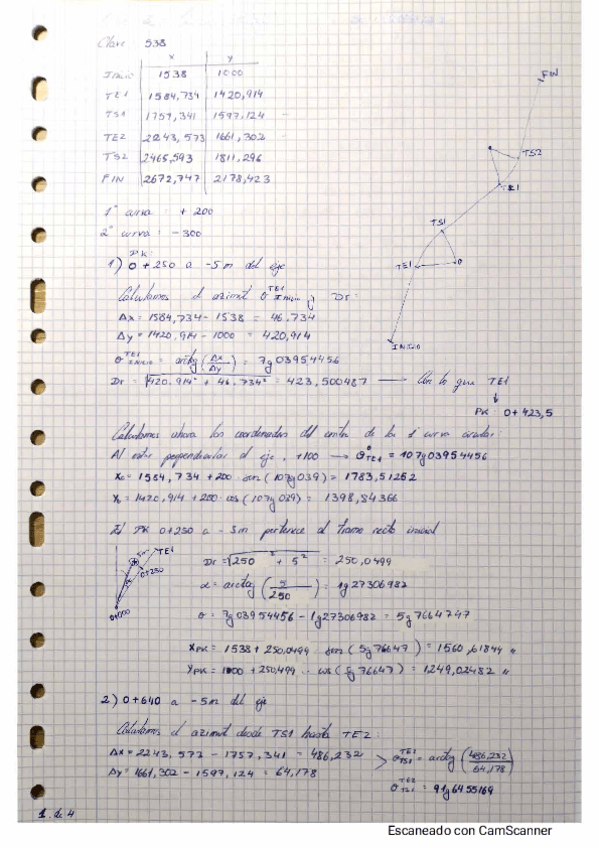 Clave : 538
x y
Inicio 1538 1000
TE1 1584,734 1420,914
TS1 1757,341 1597,124
TE2 2243,573 1661,302
TS2 2465,593 1811,296
FIN 2672,747 2178,423
1ª curva : + 200
2ª curva : - 300
FIN
TS2
TE1
TS1
TE1
INICIO
PK:
1) 0+250 a -5m del eje
Calculamos el azimut θ TE1 Inicio y Dr:
Δx = 1584,734 - 1538 = 46.734
Δy = 1420.914 - 1000 = 420,914
θ TE1 INICIO = arctg (Δx/Δy) = 7g03954456
Dr = √420.914² + 46.734² = 423,500487 → Con lo que TE1
PK: 0+423,5
Calculamos ahora las coordenadas del centro de la 1 curva circular:
Al estar perpendicular al eje, +100 → θ 0 TE1 = 107g03954456
X0 = 1584,734 + 200 · sen (107g039) = 1783,51262
Y0 = 1420,914 + 200 · cos (107g039) = 1398,84366
El PK 0+250 a -5m pertenece al tramo recto inicial
5m TE1
0+250
0+000
Dr = √250² + 5² = 250,0499
α = arctg (5/250) = 1g27306982
θ = 7g03954456 - 1g27306982 = 5g7664747
XPK = 1538 + 250,0499 · sen (5g76647) = 1560,61844 "
YPK = 1000 + 250,499 · cos (5g76647) = 1249,02482 "
2) 0+640 a -5m del eje
Calculamos el azimut desde TS1 hasta TE2:
Δx = 2243,573 - 1757,341 = 486,232 > θ TE1 TS1 = arctg (486,232/64,178)
Δy = 1661,302 - 1597,124 = 64,178
θ TE2 TS1 = 91g6455169
1 de 4
Escaneado con CamScanner